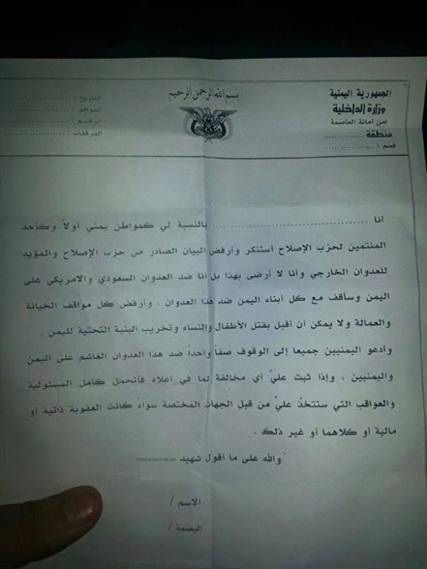 بسم الله الرحمن الرحيم
الجمهورية اليمنية
وزارة الداخلية
امن امانة العاصمة
منطقة
قسم : ..............
التاريخ : ....................
الموافق : ....................
الرقم : ....................
المرفقات : ....................
أنا .................................... بالنسبة لي كمواطن يمني أولاً وكأحد
المنتمين لحزب الإصلاح أستنكر وأرفض البيان الصادر من حزب الإصلاح والمؤيد
للعدوان الخارجي وأنا لا أرضى بهذا بل أنا ضد العدوان السعودي والامريكي على
اليمن وسأقف مع كل أبناء اليمن ضد هذا العدوان ، وأرفض كل مواقف الخيانة
والعمالة ولا يمكن أن اقبل بقتل الأطفال والنساء وتخريب البنية التحتية لليمن .
وأدعو اليمنيين جميعا إلى الوقوف صفاً واحداً ضد هذا العدوان الغاشم على اليمن
واليمنيين ، وإذا ثبت عليّ أي مخالفة لما في اعلاه فأتحمل كامل المسئولية
والعواقب التي ستتخذ عليّ من قبل الجهات المختصة سواءً كانت العقوبة ذاتية أو
مالية أو كلاهما أو غير ذلك .
والله على ما أقول شهيد ،،،،،،،،،،،،
الاسم /
البصمة /